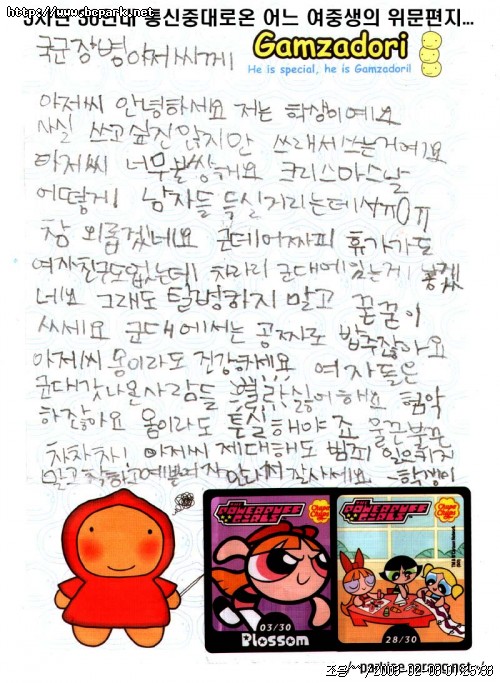 http://hcpark.net
통신중대로온 어느 여중생의 위문편지...
국군장병아저씨께
Gamzadori
He is special, he is Gamzadori!
아저씨 안녕하세요 저는 학생이예요
사실 쓰고싶진않지만 쓰래서쓰는거예요
아저씨 너무불쌍해요 크리스마스날
어떻게 남자들 득실거리는데서ㅠ0ㅠ
참 외롭겠네요 근데어짜피 휴가가도
여자친구도없는데 차라리 군대에있는게
네요 그래도 탈영하지 말고 꾿꾿이
싸세요 군대에서는 공짜로 밥주잖아요
아저씨 몸이라도 건강하세요 여자들은
군대갓나온사람들 싫어해요 험악
하잖아요 몸이라도 튼실해야죠 울끈불끈
차차차! 아저씨 제대해도 범죄 일으키지
말고착하고예쁜여자 만나서잘사세요 -학생이
POWERPUFF GIRLS
Chupa Chups
03/30
Blossom
POWERPUFF GIRLS
Chupa Chups
28/30